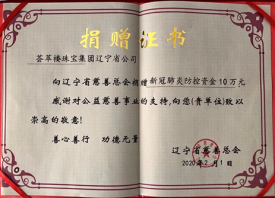 捐赠证书
荟萃楼珠宝集团辽宁省公司
向辽宁省慈善总会捐赠新冠肺炎防控资金10万元
感谢对公益慈善事业的支持,向您(贵单位)致以
崇高的敬意!
善心善行 功德无量
辽宁省慈善总会
2020年2月1日